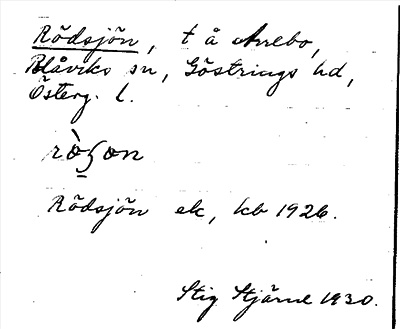 Rödsjön, t å Anebo,
Blåviks sn, Göstrings hd,
Österg. l.
Rödsjön ek, kb 1926.
Stig Stjärne 1930.